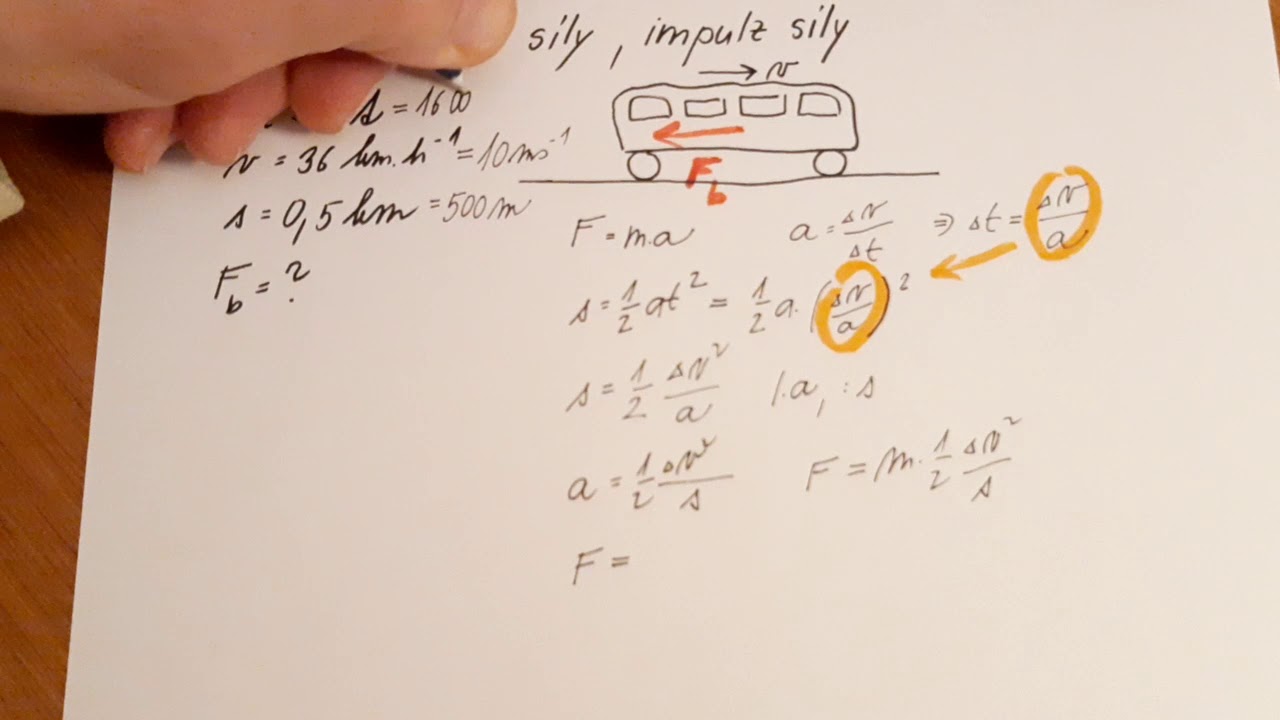 sily, impulz sily
v
= 1600
v = 36 km.h⁻¹ = 10 ms⁻¹
s = 0,5 km = 500 m
F_b = ?
F_b
F = m.a    a = Δv/Δt ⇒ Δt = Δv/a
s = 1/2 at² = 1/2 a. (Δv/a)²
s = 1/2 Δv²/a    /.a, : s
a = 1/2 Δv²/s    F = m. 1/2 Δv²/s
F =